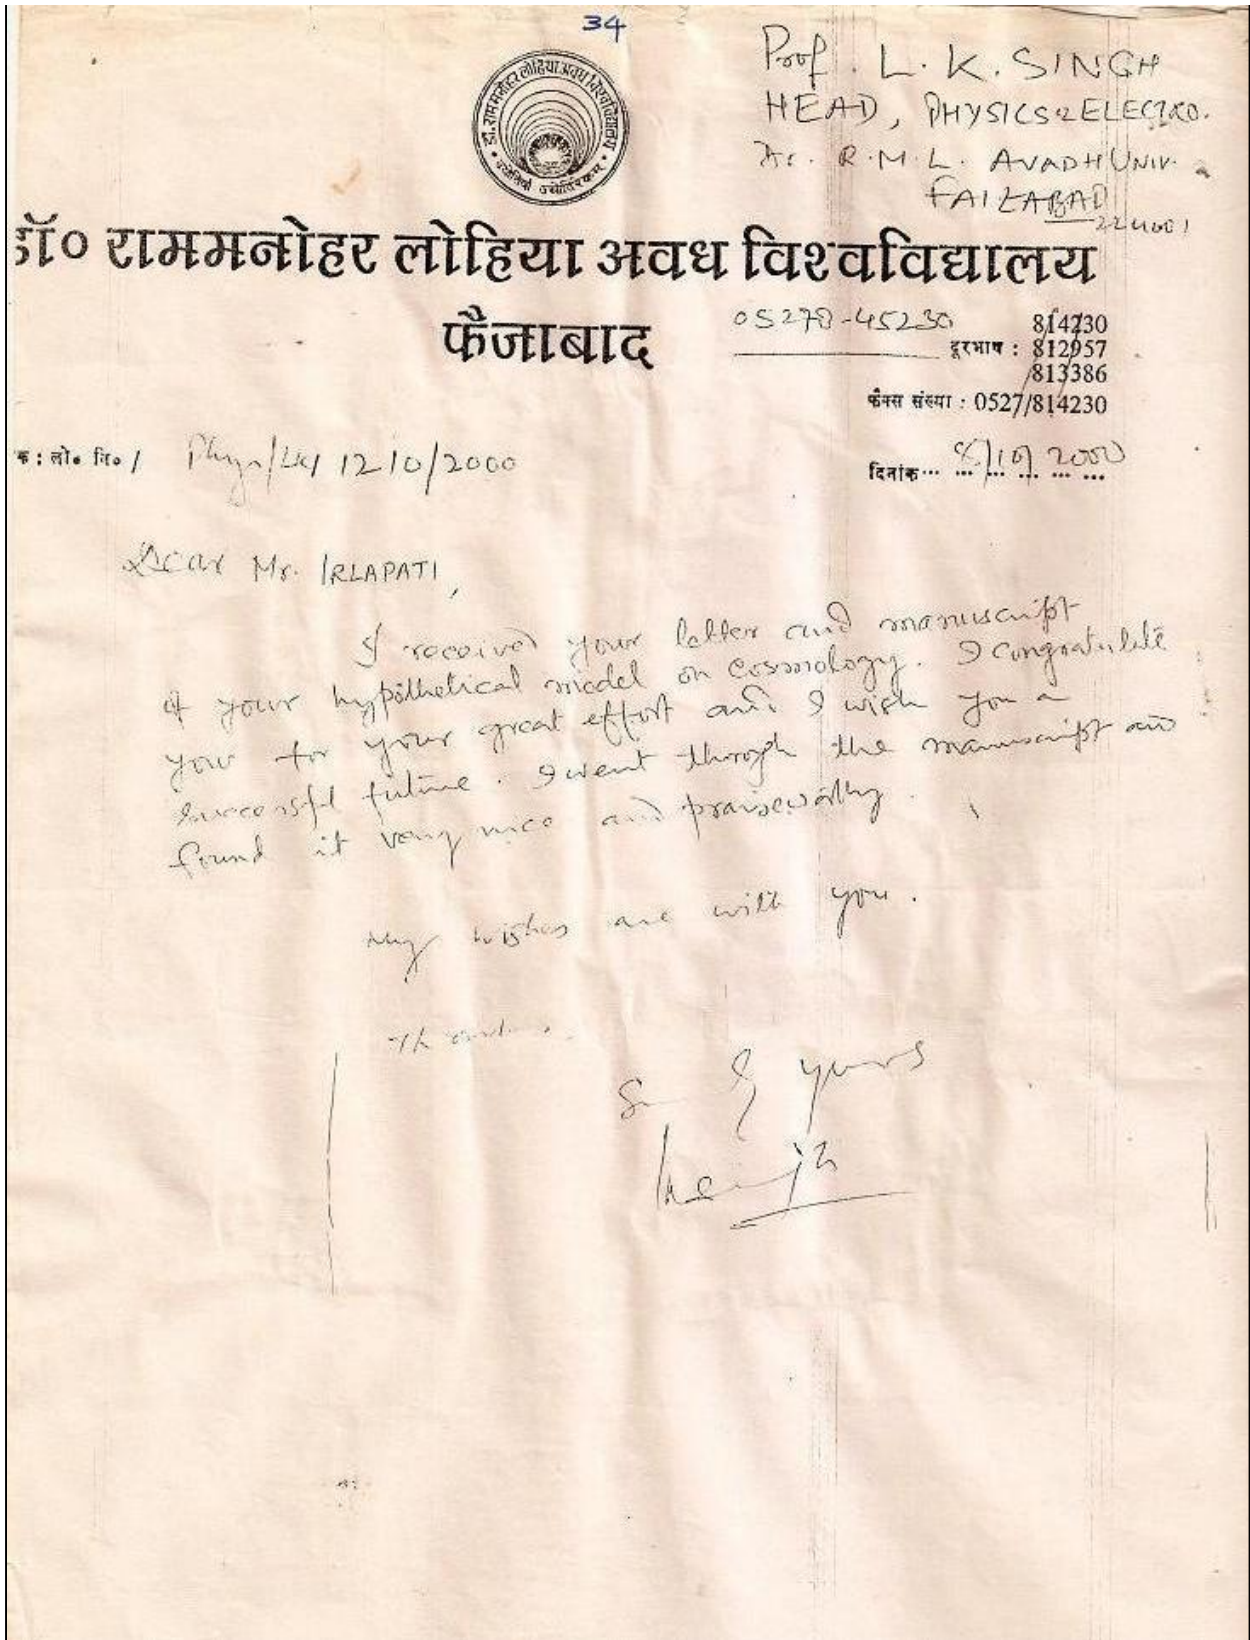 34
Prof. L. K. SINGH
HEAD, PHYSICS & ELECTRO.
Dr. R. M. L. AVADH UNIV.
FAIZABAD
224001
डॉ० राममनोहर लोहिया अवध विश्वविद्यालय
फैजाबाद
05278-45230
814230
दूरभाष : 812957
813386
फैक्स संख्या : 0527/814230
क : लो० नि० / 12/10/2000
दिनांक 8/10/2000
Dear Mr. IRLAPATI,
I received your letter and manuscript
of your hypothetical model on cosmology. I congratulate
you for your great effort and I wish you a
successful future. I went through the manuscript and
found it very nice and praiseworthy.
My wishes are with you.
Thanks.
yours